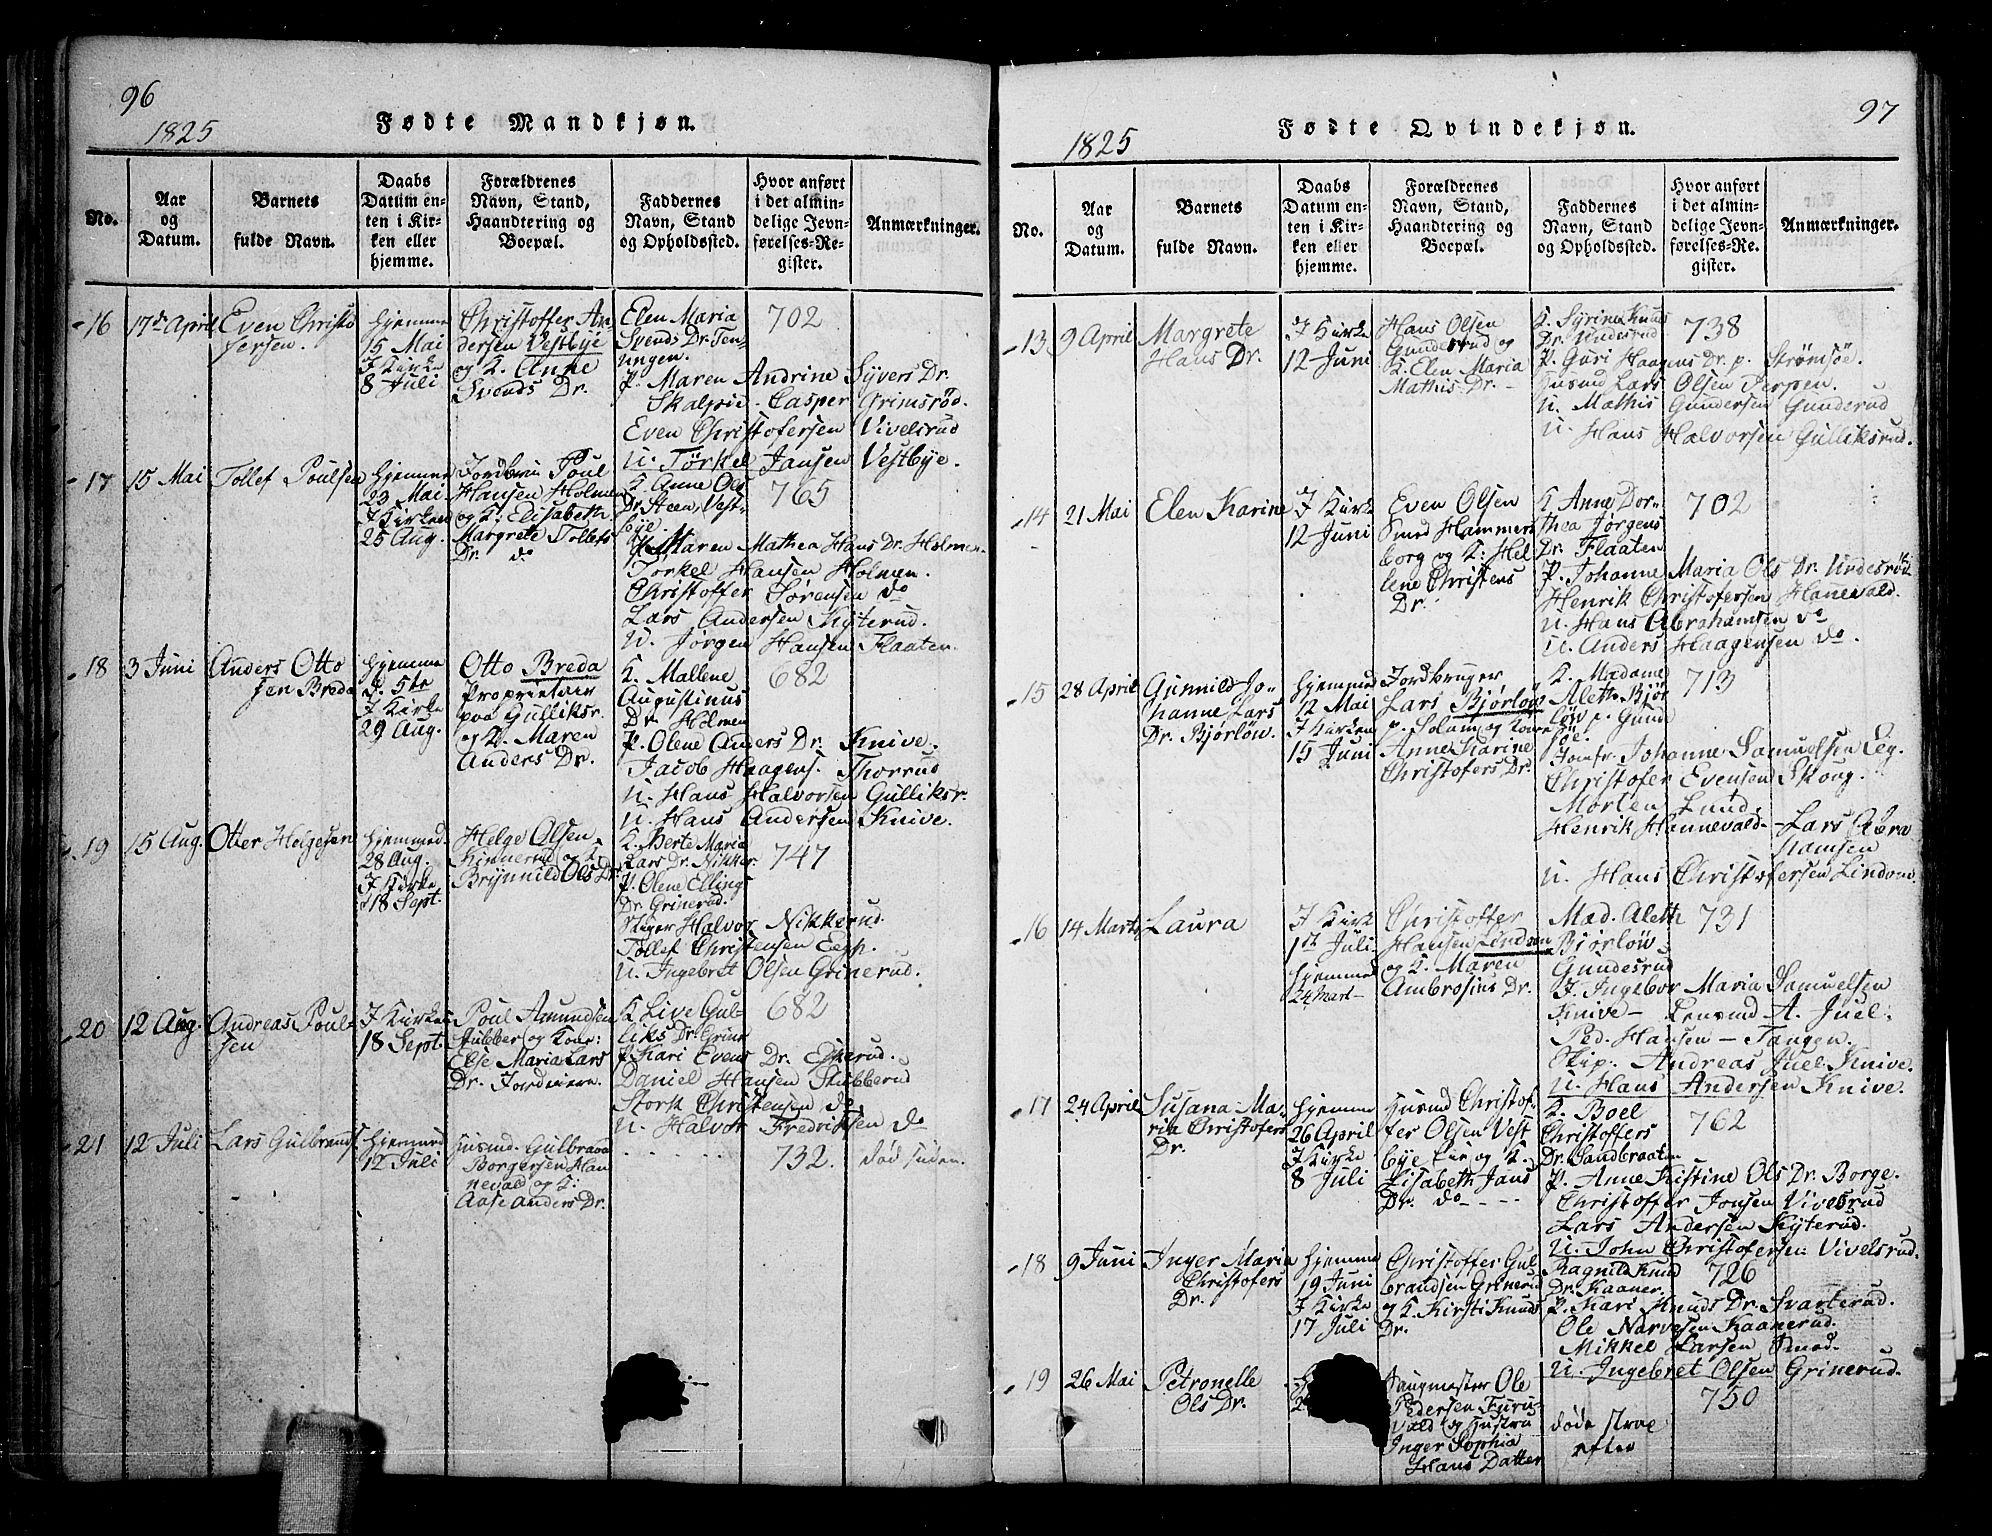 96
1825
Fødte Mandkjøn.
No.
Aar
og
Datum.
Barnets
fulde Navn.
Daabs
Datum en-
ten i Kir-
ken eller
hjemme.
Forældrenes
Navn, Stand,
Haandtering og
Boepæl.
Faddernes
Navn, Stand
og Opholdssted.
Hvor anført
i det almin-
delige Jevn-
førelses-Re-
gister.
Anmærkninger.
16
17de April
Even Christo
fersen.
hjemme
15 Mai
I Kirke
8 Juli
Christoffer An-
dersen Vestbye
og K. Anne
Svends Dr.
Elen Maria
Svends Dr. Ten-
ningen.
P. Maren Andrine Syvers Dr.
Skalpie. Casper Grimsrød.
Even Christofersen Vivelsrud
U. Törkel Jansen Vestbye.
702
17
15 Mai
Tollef Poulsen
hjemme
23 Mai
I Kirken
25 Aug.
Poul
Hansen Holmen
og K: Elisabeth
Margrete Tollefs
Dr. do
K. Anne Ols
Dr. Steen, Vest-
bye.
P. Maren Mathea Hans Dr. Holmen.
Torkel Hansen Holmen.
Christoffer Sörensen do
Lars Andersen Kyterud.
U. Jørgen Hansen Flaaten.
765
18
3 Juni
Anders Otto
sen Breda
hjemme
d. 5te
I Kirke
29 Aug.
Otto Breda
Proprietair
paa Gulliksr.
og K. Maren
Anders Dr.
K. Mallene
Augustinus
Dr. Holmen
P. Olene Anders Dr. Knive.
Jacob Haagens. Thorrud
U. Hans Halvorsen Gulliksr.
U. Hans Andersen Knive.
682
19
15 Aug.
Otter Helgesen
hjemmed
28 Aug.
I Kirke
18 Sept.
Helge Olsen
Kinnerud og K.
Brynnild Ols Dr.
K. Berte Maria
Lars Dr. Nikker.
P. Olene Ellings
Dr. Grinerud.
Halvor Nikkerud.
Tollef Christensen Eegh.
U. Ingebret Olsen Grinerud.
747
20
12 Aug.
Andreas Poul-
sen
I Kirken
18 Sept.
Poul Amundsen
Stubber og Kone:
Else Maria Lars
Dr. Jordeiere.
K Live Gul-
liks Dr. Grine
P. Kari Evens Dr. Eskerud.
Daniel Hansen Stubberud
Stork Christensen do
U. Halvor Fredriksen do
682
21
12 Juli
Lars Gulbrands.
hjemmed
12 Juli
Husmd. Gulbrand
Borgersen Han
nevald og K:
Aase Anders Dr.
732.
død siden.
97
1825
Fødte Qvindekjøn.
No.
Aar
og
Datum.
Barnets
fulde Navn.
Daabs
Datum en-
ten i Kir-
ken eller
hjemme.
Forældrenes
Navn, Stand,
Haandtering og
Boepæl.
Faddernes
Navn, Stand
og Opholdssted.
Hvor anført
i det almin-
delige Jevn-
førelses-Re-
gister.
Anmærkninger.
13
9 April
Margrete
Hans Dr.
I Kirke
12 Juni
Hans Olsen
Gunderud og
K. Elen Maria
Mathis Dr.
K. Syrine Knuds
Dr. Gunderud
P. Guri Haagens Dr. p. Strømsöe.
Husmd Lars Olsen Terpen.
U. Mathis Gundersen Gunderud
U. Hans Halvorsen Gulliksrud.
738
14
21 Mai
Elen Karine
I Kirk
12 Juni
Even Olsen
Smed Hammers
borg og K: Hel
lene Christens
Dr.
K. Anne Dor-
thea Jørgens
Dr. Flaaten
P. Johanne Maria Ols Dr. Undesrøk
Henrik Christofersen Hanevald.
U. Hans Abrahamsen do
U. Anders Haagensen do.
702
15
28 April
Gunnild Jo-
hanne Lars
Dr. Bjørløw
hjemmed
12 Mai
I Kirken
15 Juni
Jordbruger
Lars Bjørløw
p. Solum og Kone
Anne Karine
Christofers Dr.
K. Madame
Aleth Bjør
løw p. Gund
Jomfr. Johanne Samuelsen Eeg.
Christofer Evensen Skoug.
Morten Lund.
Henrik Hannevald-Lars Abra
hamsen
U. Hans Christofersen Lindom.
713
16
14 Marts
Laura
I Kirk
1st Juli
hjemmed
24 Mart
Christoffer
Hansen Lindom
og K. Maren
Ambrosius Dr.
Mad. Aleth
Bjørløw
Gundesrud
J. Ingebor Maria Samuelsen
Knive - Lensmd A. Juel.
Ped. Hansen - Tangen.
Skip. Andreas Juel Knive.
U. Hans Andersen Knive.
731
17
24 April
Susana Ma-
ria Christofers
Dr.
hjemme
26 April
I Kirke
8 Juli
Husmd Christof-
fer Olsen Vest
bye Eie og K.
Lisabeth Jans
Dr. do
K. Boel
Christoffers
Dr. Sandbraaten
P. Anne Kistine Ols Dr. Borge.
Christoffer Jonsen Vivelsrud
Lars Andersen Kyterud.
U. John Christofersen Vivelsrud.
762
18
9 Juni
Inger Maria
Christofers
Dr.
hjemme
19 Juni
I Kirke
17 Juli
Christoffer Gul
brandsen Grinerud
og K. Kirsti Knuds
Dr.
Ragnild Knud
Dr. Kaaner.
P. Kari Knuds Dr. Svarterud.
Ole Narvesen Kaanerud.
Mikkel Larsen Smed.
U. Ingebret Olsen Grinerud.
726
19
26 Mai
Petronelle
Ols Dr.
Saugmester Ole
Pedersen Furu-
vald og Hustru
Inger Sophia
Hans Datter
døde strax
efter
750